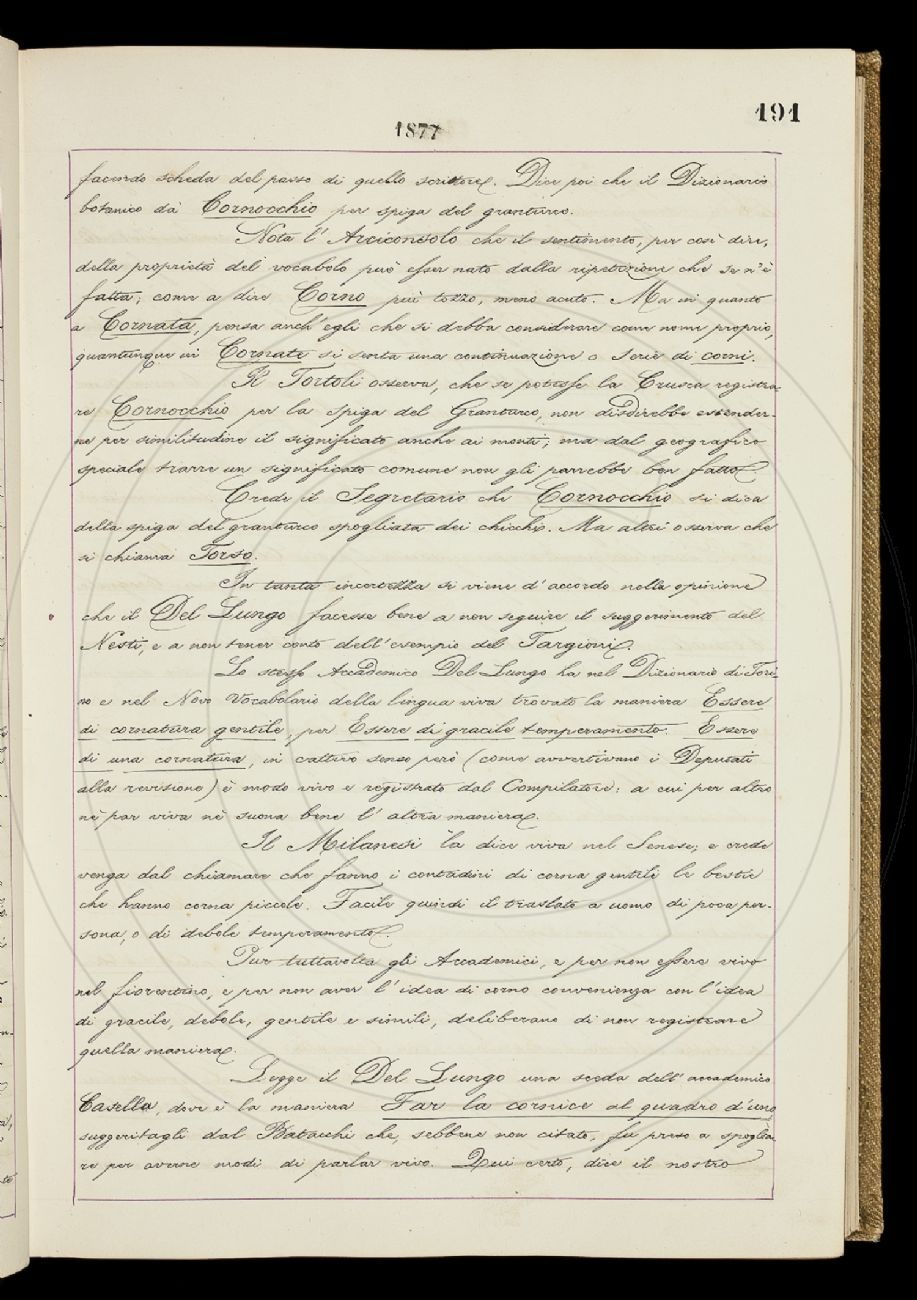 191
1877
facendo scheda del passo di quello scrittore. Dice poi che il Dizionario
botanico dà Cornocchio per spiga del granturco.
Nota l' Arciconsolo che il sentimento, per così dire,
della proprietà del vocabolo può esser nato dalla ripetizione che se n'è
fatta; come a dire Corno più tozzo, meno acuto. Ma in quanto
a Cornata, pensa anch'egli che si debba considerare come nome proprio,
quantunque in Cornate si senta una continuazione o serie di corni.
Il Tortoli osserva, che se potesse la Crusca registra-
re Cornocchio per la spiga del Granturco, non disdirebbe estender-
ne per similitudine il significato anche ai monti; ma dal geografico
speciale trarre un significato comune non gli parrebbe ben fatto.
Crede il Segretario che Cornocchio si dica
della spiga del granturco spogliata dei chicchi. Ma altri osserva che
si chiama Torso.
In tanta incertezza si viene d'accordo nella opinione
che il Del Lungo facesse bene a non seguire il suggerimento del
Nesti, e a non tener conto dell'esempio del Targioni.
Lo stesso Accademico Del Lungo ha nel Dizionario di Tori-
no e nel Novo Vocabolario della lingua viva trovato la maniera Essere
di cornatura gentile, per Essere di gracile temperamento. Essere
di una cornatura, in cattivo senso però (come avvertivano i Deputati
alla revisione) è modo vivo e registrato dal Compilatore: a cui per altro
nè par viva nè suona bene l' altra maniera.
Il Milanesi la dice viva nel Senese; e crede
venga dal chiamare che fanno i contadini di corna gentili le bestie
che hanno corna piccole. Facile quindi il traslato a uomo di poca per-
sona, o di debole temperamento.
Pur tuttavolta gli Accademici, e per non essere vivo
nel fiorentino, e per non aver l'idea di corno convenienza con l'idea
di gracile, debole, gentile e simili, deliberano di non registrare
quella maniera.
Legge il Del Lungo una sceda dell'accademico
Casella, dove è la maniera Far la cornice al quadro d'uno,
suggeritagli dal Batacchi che, sebbene non citato, fu preso a spoglia-
re per averne modi di parlar vivo. Qui certo, dice il nostro